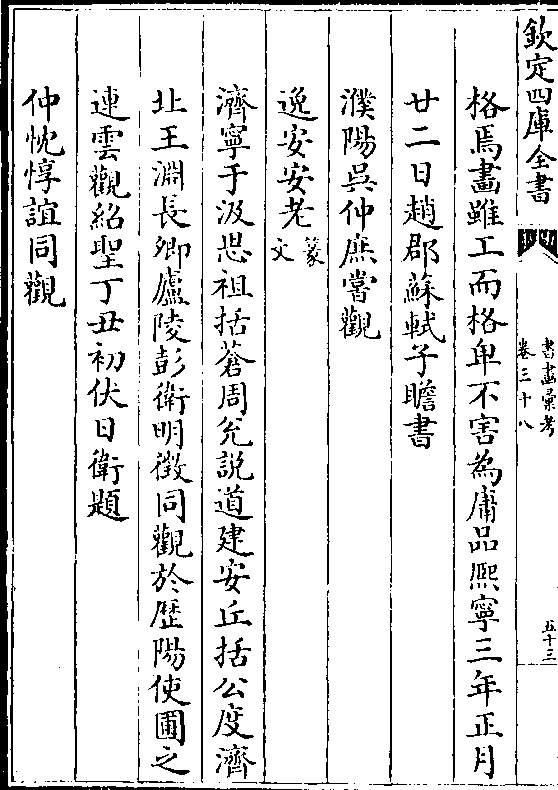 欽定四庫全書
書畫彙考
卷三十八
五十三
格焉畫雖工而格卑不害為庸品熙寧三年正月
廿二日趙郡蘇軾子瞻書
濮陽吳仲庶嘗觀
逸安安老篆文
濟寧于汲思祖括蒼周允説道建安丘括公度濟
北王淵長卿廬陵彭衛明微同觀於歴陽使圃之
連雲觀紹聖丁丑初伏日衛題
仲忱惇誼同觀